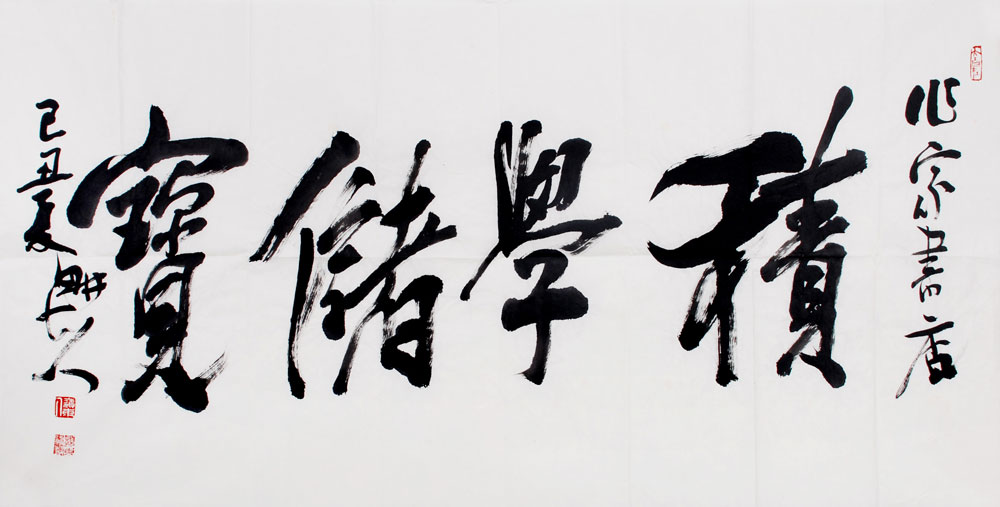 作家書店
積學儲寶
己丑夏